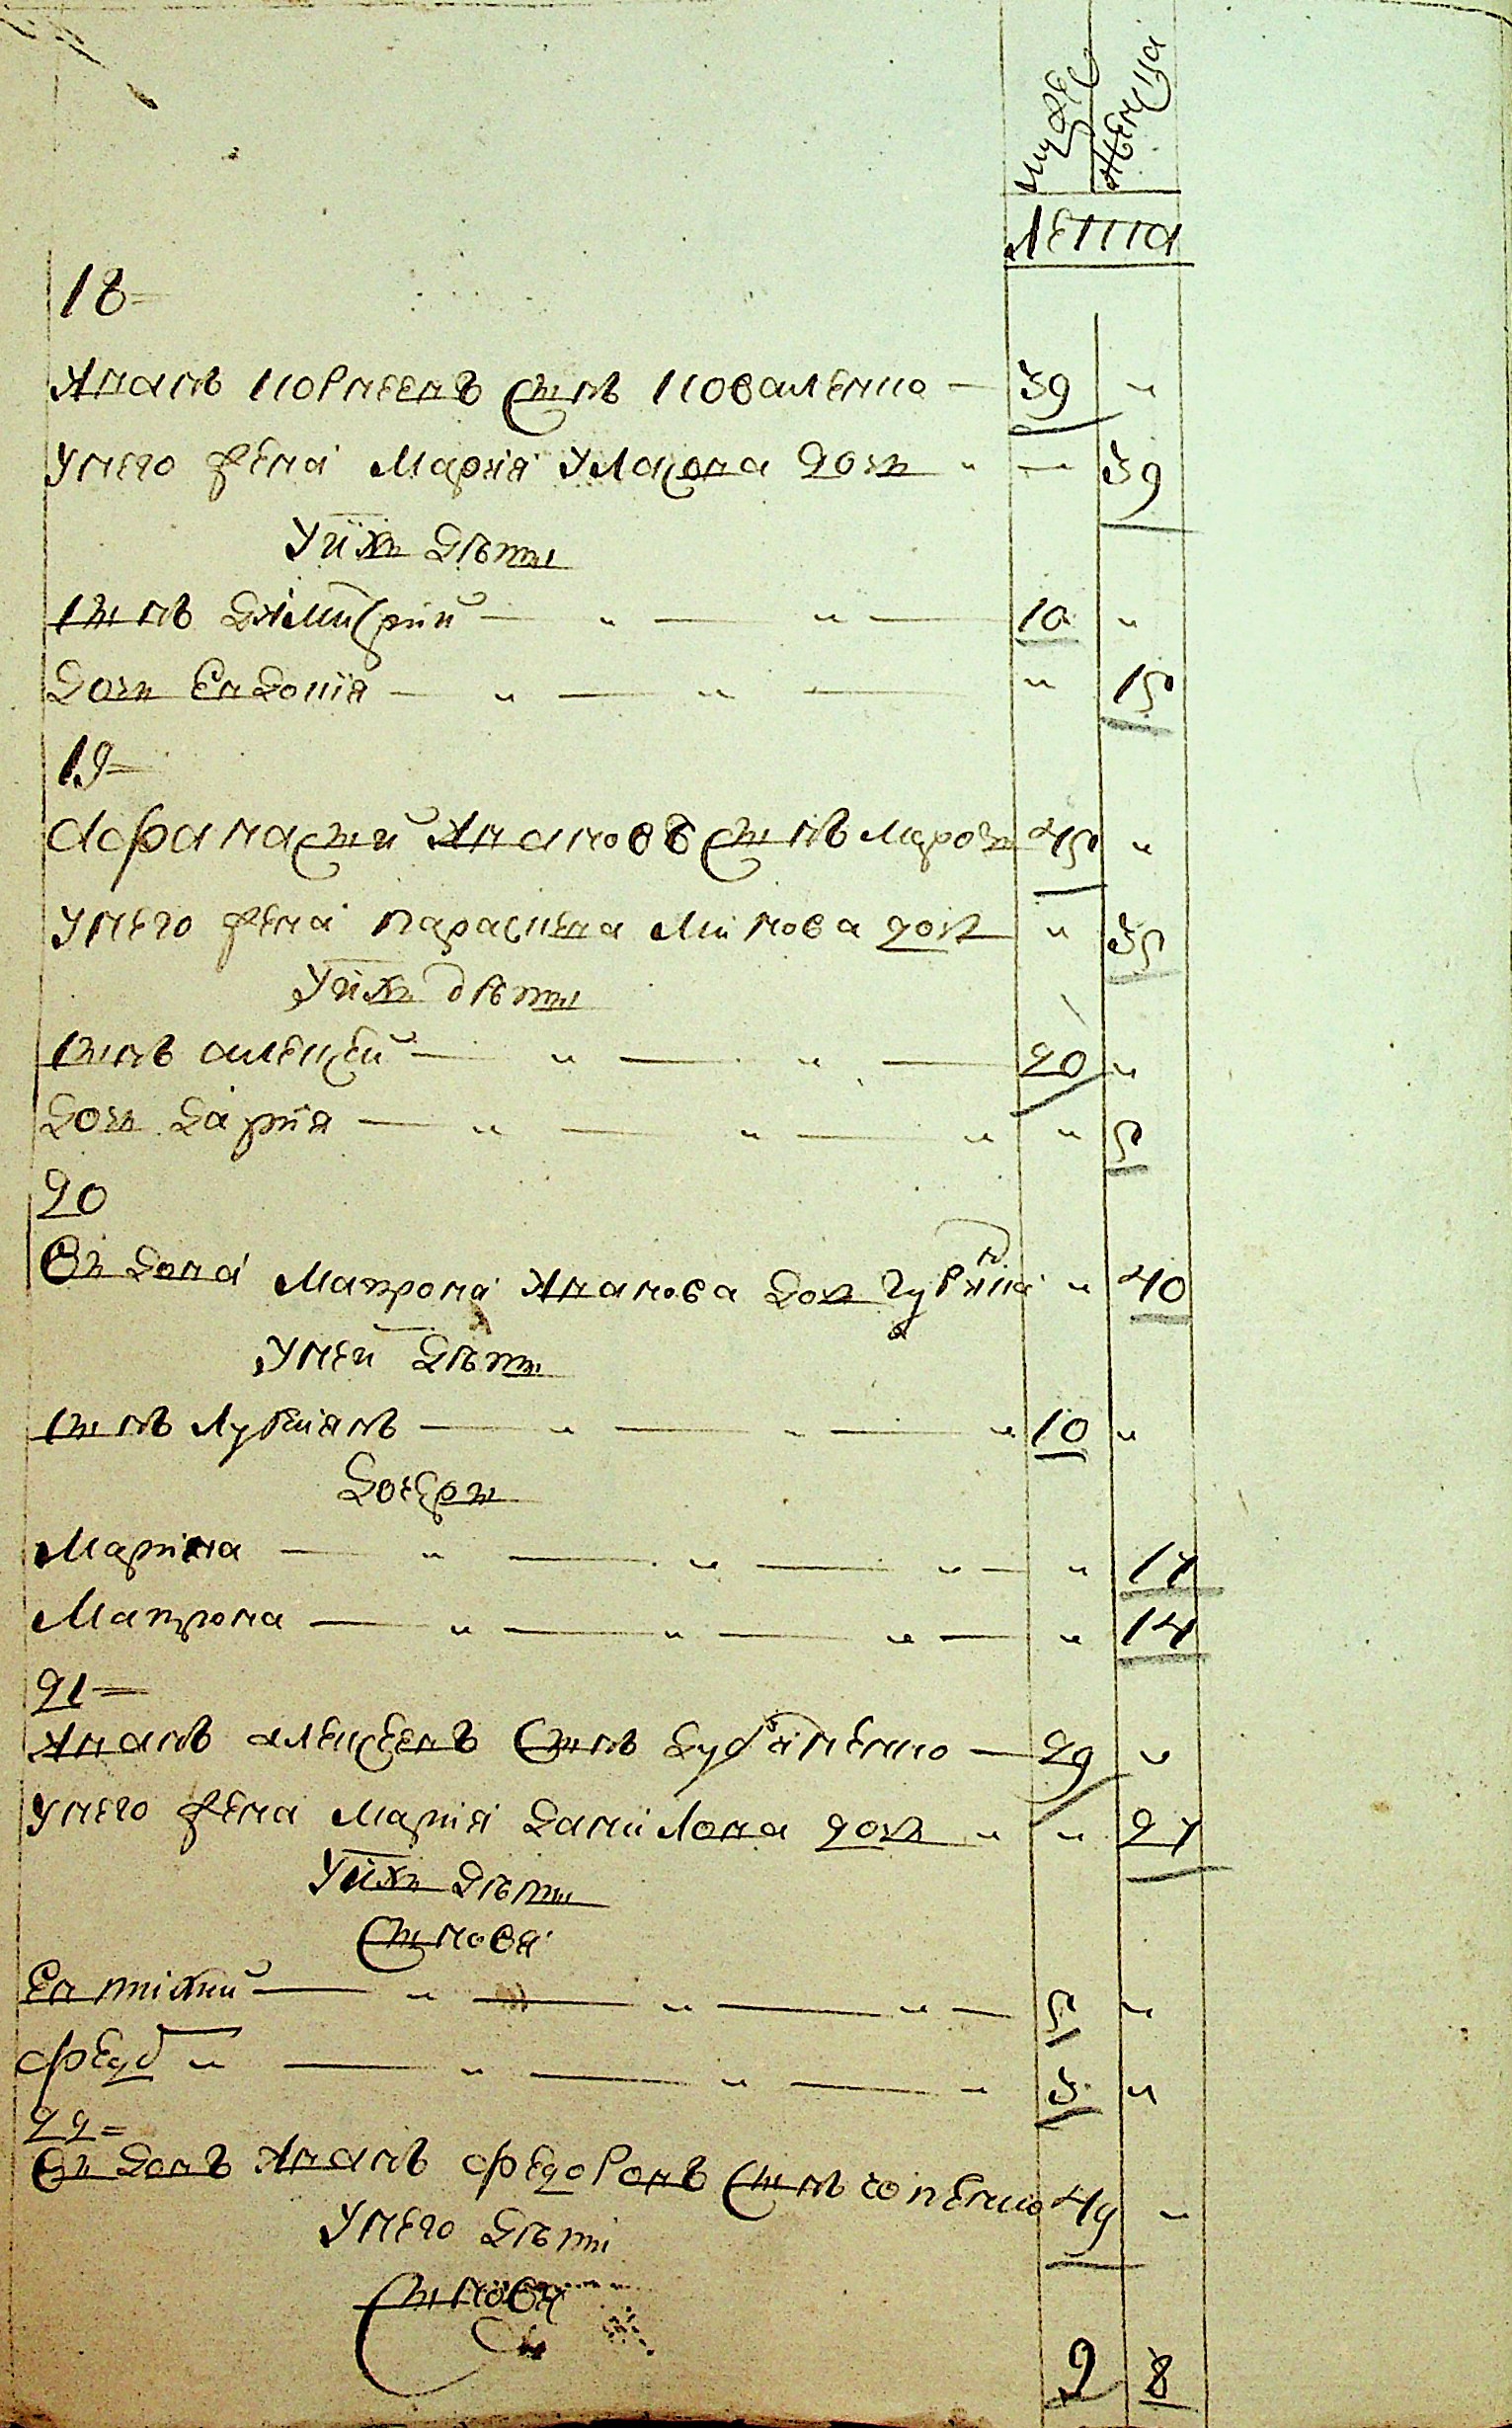 мужеска
женска
лета
18
Иванъ Корнеевъ сынъ Коваленко — 39 „
У него жена Мария Уласова дочь „ — 39
У ихъ дѣты
Сынъ Димитрий — „ — „ — 10 „
Дочь Евдокїя — „ — „ — „ 15
19
Афанасий Ивановъ сынъ 45 „
У него жена Параскева Минова дочь „ 35
У ихъ дѣты
Сынъ Алексей — „ — „ — 20 „
Дочь Дария — „ — „ — „ „ 5
20
Вдова Матрона Иванова дочь „ 40
У ней дѣты
Сынъ Лукиянъ — „ — „ — „ 10 „
Дочеры
Марина — „ — „ — „ — „ 17
Матрона — „ — „ — „ — „ 14
21
Иванъ Алексеевъ сынъ — 29 „
У него жена Мария Данилова дочь „ „ 27
У ихъ дѣты
Сыновя
Евтихий — „ — „ — „ — 5 „
Федоръ „ — „ — „ — „ 3 „
22
Вдовъ Иванъ Федоровъ сынъ 49 „
У него дѣти
Сыновя
9 8